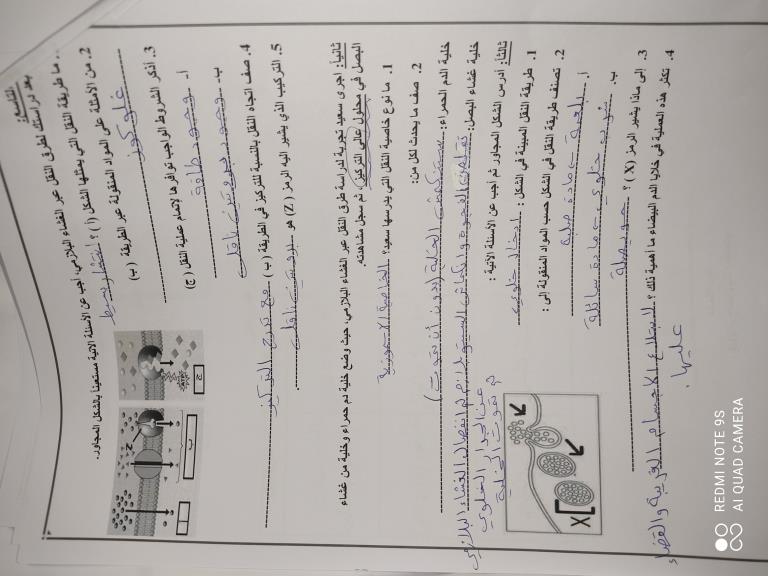 التاسع:
بعد دراستك لطرق النقل عبر الغشاء البلازمي، أجب عن الأسئلة الآتية مستعيناً بالشكل المجاور.
ما طريقة النقل التي يمثلها الشكل ( أ ) ؟ انتشار بسيط
2. من الأمثلة على المواد المنقولة عبر الطريقة ( ب )
غلوكوز
3. أذكر الشروط الواجب توافرها لإتمام عملية النقل (ج)
أ. وجود طاقة
ب. وجود بروتين ناقل
4. صف اتجاه النقل بالنسبة للتركيز في الطريقة ( ب ) مع تدرج التركيز
5. التركيب الذي يشير اليه الرمز ( Z ) هو بروتين ناقل
ثانياً: اجرى سعيد تجربة لدراسة طرق النقل عبر الغشاء البلازمي، حيث وضع خلية دم حمراء وخلية من غشاء
البصل في محلول عالي التركيز ثم سجل مشاهدته.
1. ما نوع خاصية النقل التي يدرسها سعيد؟ الخاصية الاسموزية
2. صف ما يحدث لكل من:
خلية الدم الحمراء: ستنكمش الخلية (دون أن تموت)
خلية غشاء البصل: تقلص الفجوة وانكماش السيتوبلازم ثم انفصال الغشاء البلازمي
عن الجدار الخلوي
ثم تموت الخلية
ثالثاً: أدرس الشكل المجاور ثم أجب عن الأسئلة الآتية :
1. طريقة النقل المبينة في الشكل : ادخال خلوي
2. تصنف طريقة النقل في الشكل حسب المواد المنقولة إلى :
أ. بلعمة - مادة صلبة
ب. شرب خلوي - مادة سائلة
3. إلى ماذا يشير الرمز ( X ) ؟ حويصلة
4. تكثر هذه العملية في خلايا الدم البيضاء ما أهمية ذلك ؟ لابتلاع الاجسام الغريبة والقضاء
عليها .
ج
ب
Z
X
REDMI NOTE 9S
AI QUAD CAMERA